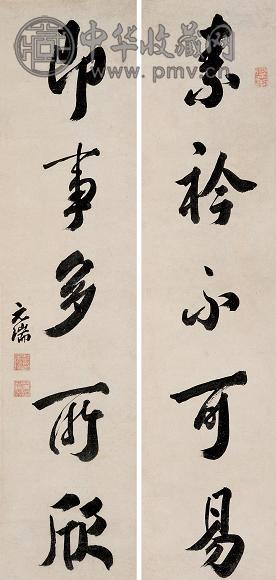 中华收藏网
www.pmv.cn
素衿不可易
即事多所欣
元瑞